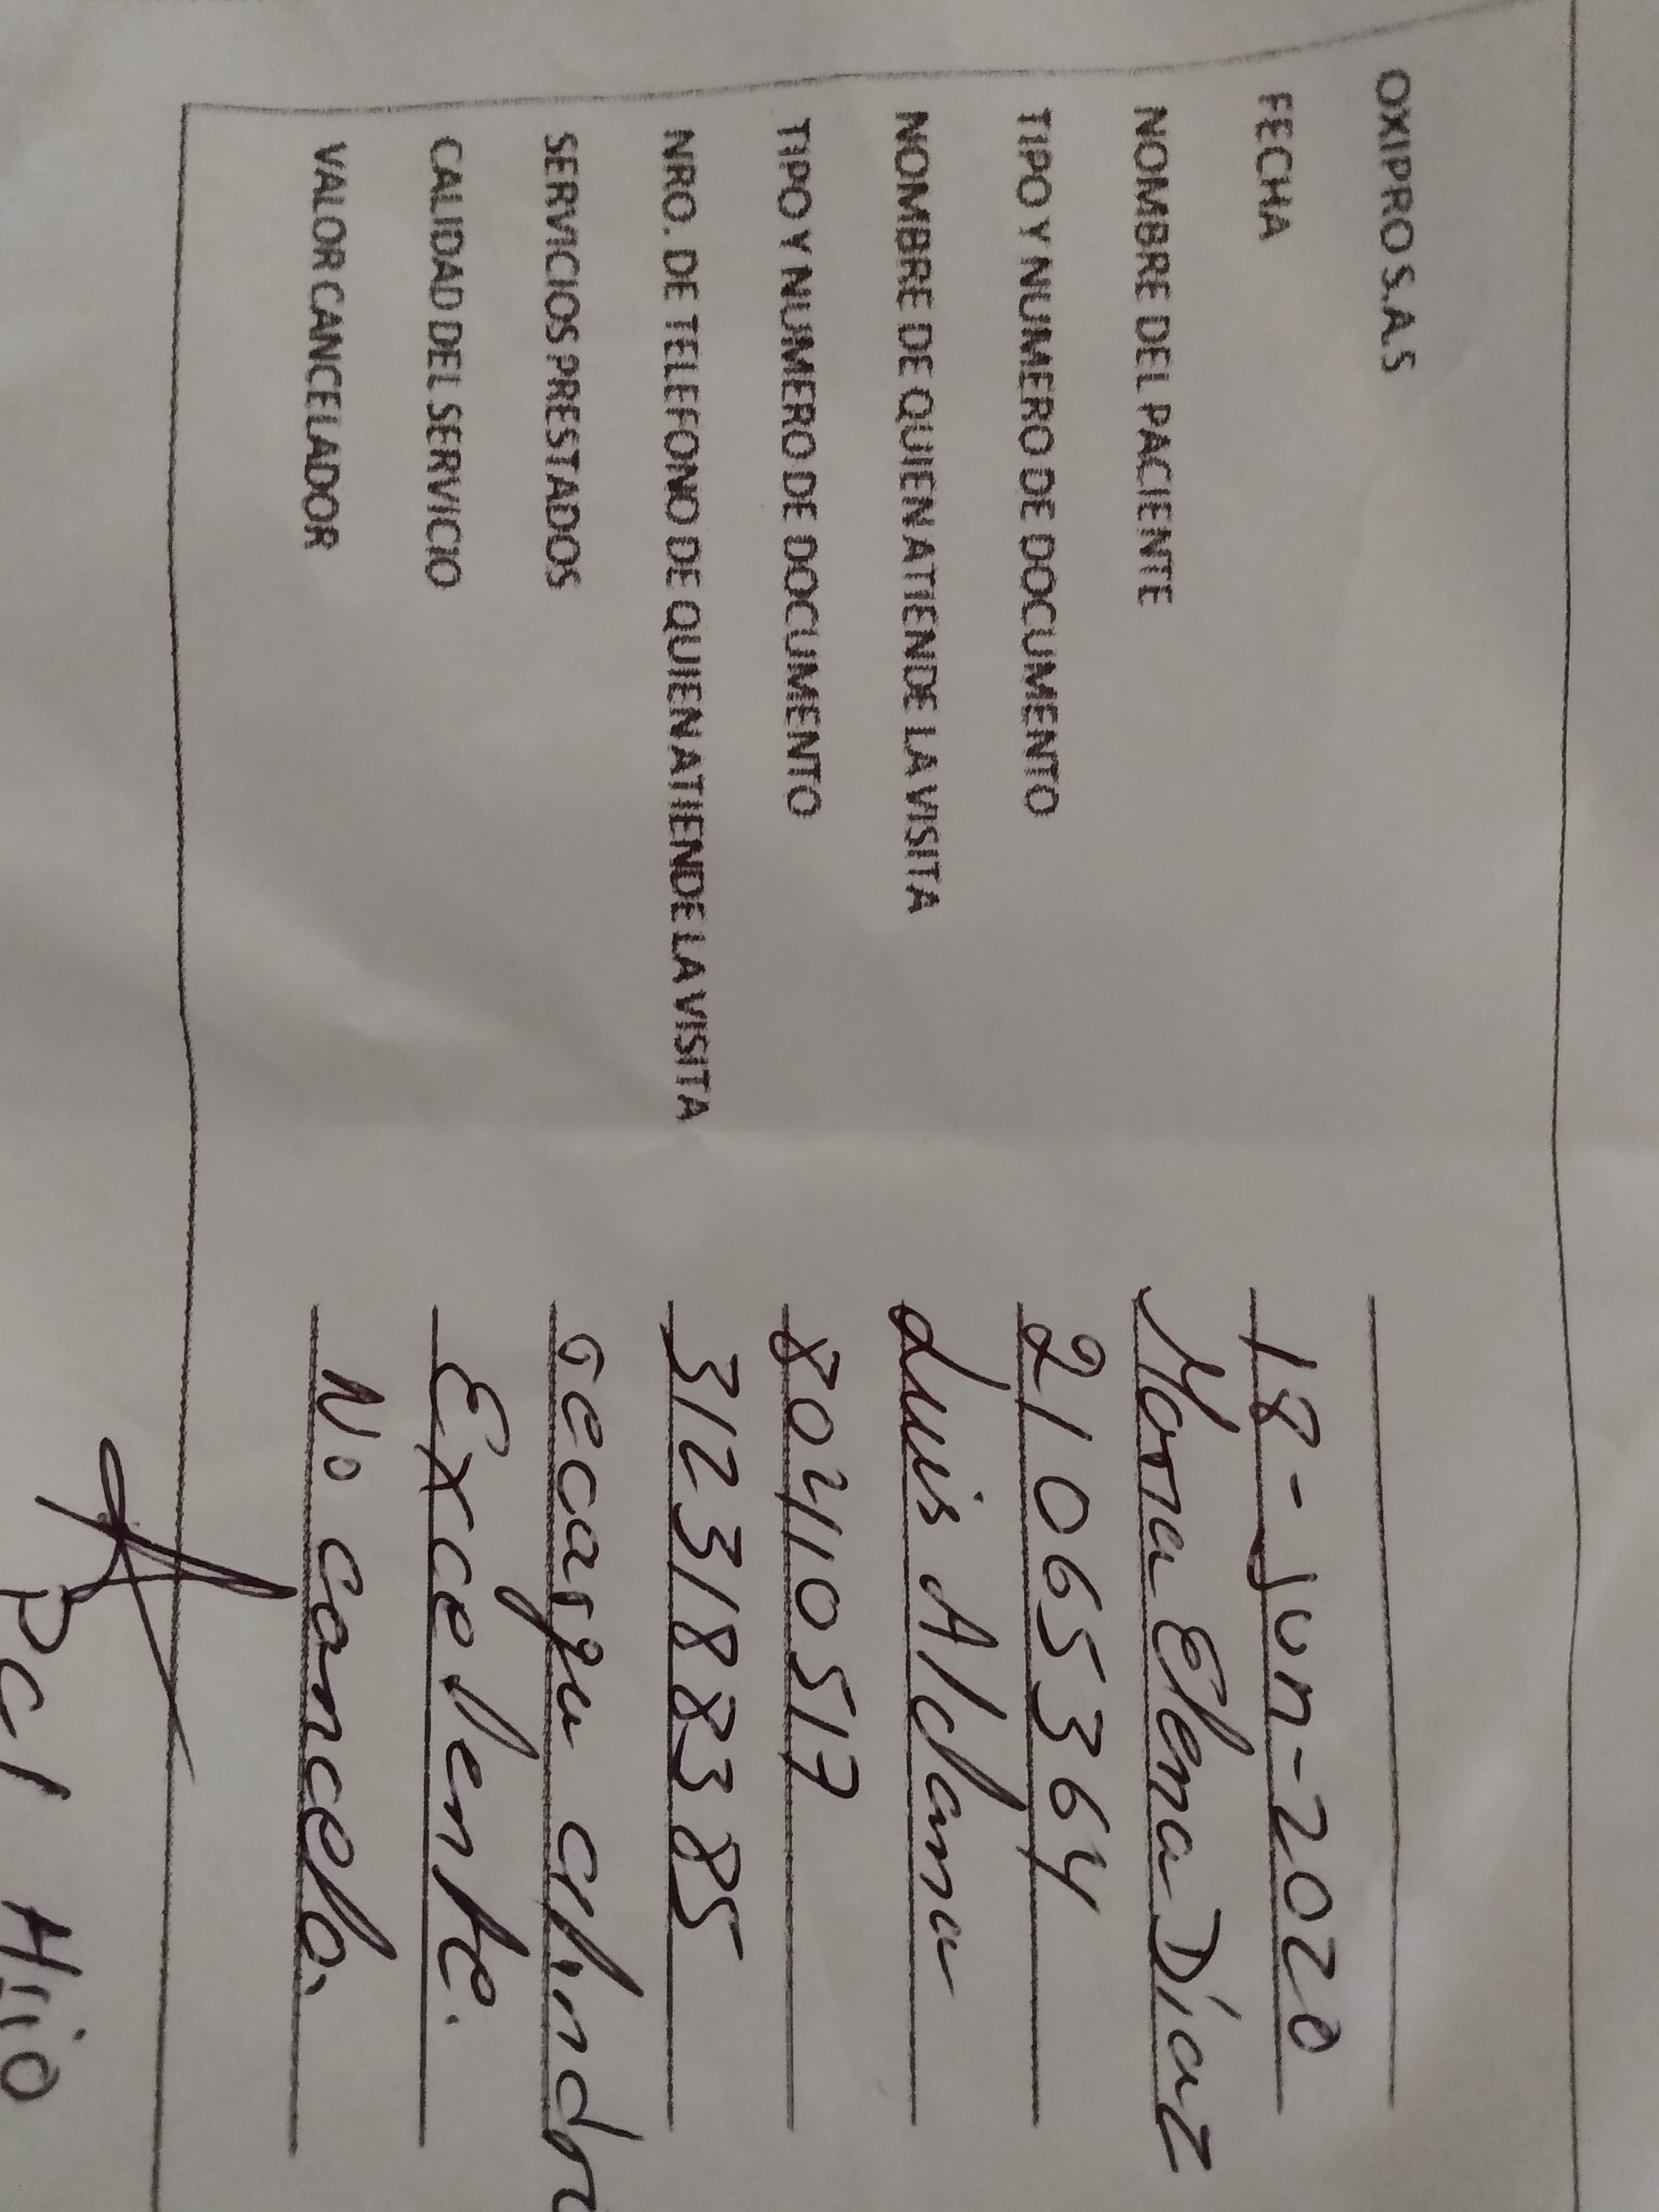 OXIPRO S.A.S
FECHA 18-Jun-2020
NOMBRE DEL PACIENTE Maria Elena Díaz
TIPO Y NUMERO DE DOCUMENTO 21065364
NOMBRE DE QUIEN ATIENDE LA VISITA Luis Aldana
TIPO Y NUMERO DE DOCUMENTO 80410517
NRO. DE TELEFONO DE QUIEN ATIENDE LA VISITA 3123188385
SERVICIOS PRESTADOS recarga cilindro
CALIDAD DEL SERVICIO Excelente.
VALOR CANCELADOR No cancelo.
Hijo